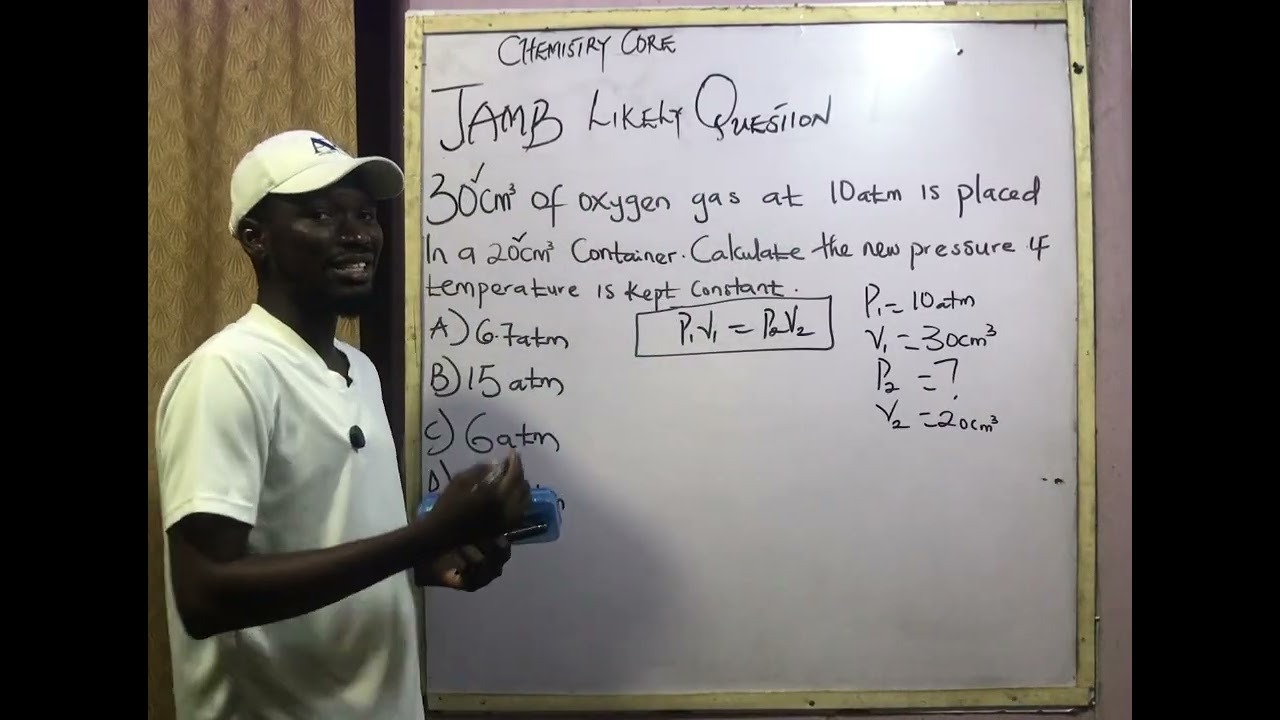 CHEMISTRY CORE
JAMB LIKELY QUESTION
30cm³ of oxygen gas at 10atm is placed
In a 20cm³ Container. Calculate the new pressure if
temperature is kept constant.
A) 6.7atm
B) 15 atm
C) 6atm
D)
P₁V₁ = P₂V₂
P₁ = 10atm
V₁ = 30cm³
P₂ = ?
V₂ = 20cm³